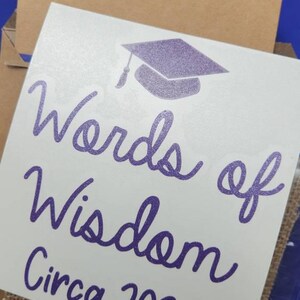 Words of
Wisdom
Circa